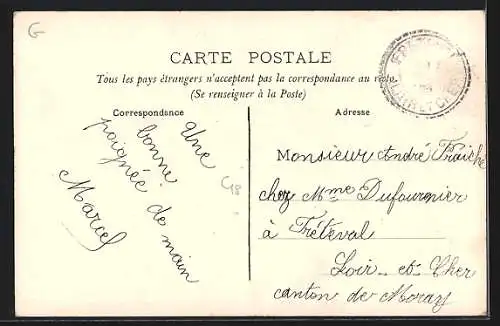 G
CARTE POSTALE
Tous les pays étrangers n'acceptent pas la correspondance au recto
(Se renseigner à la Poste)
Correspondance
Une
bonne
poignée de main
Marcel
C18
Adresse
Monsieur André Fraiche
chez Mme Dufournier
à Fréteval
Loir-et-Cher
canton de Morey
LOIR-ET-CHER